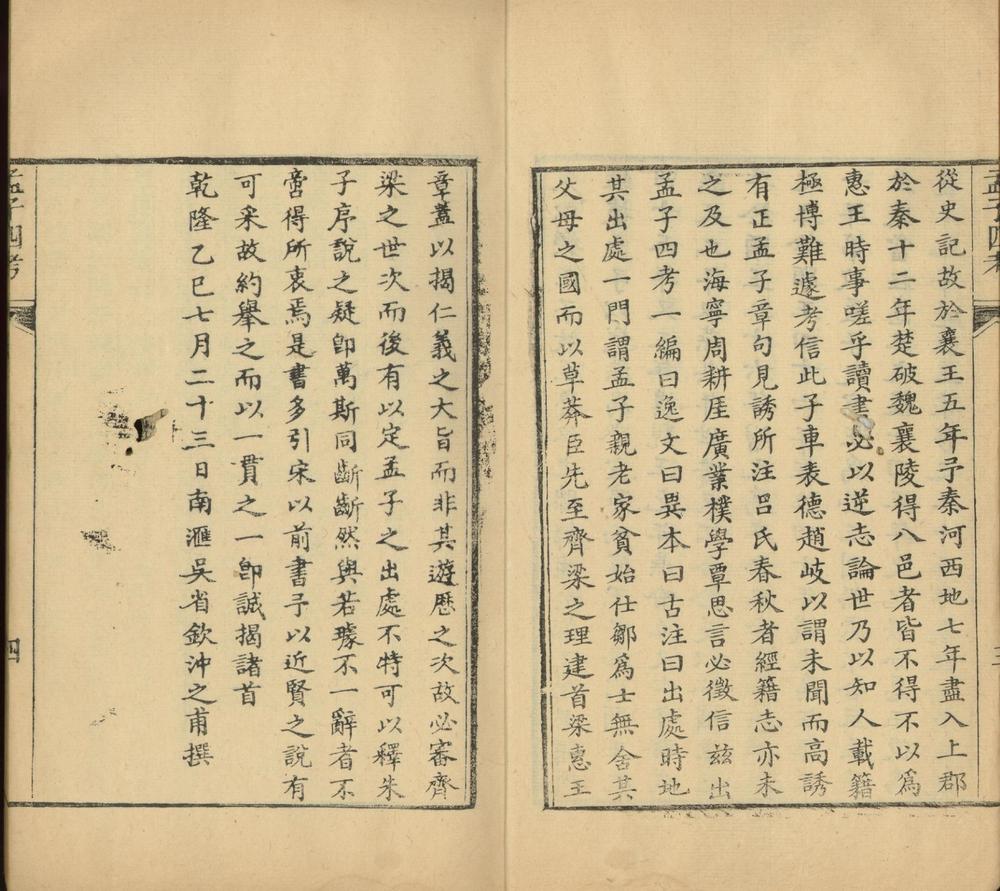 孟子四考
從史記故於襄王五年予秦河西地七年盡入上郡
於秦十二年楚破魏襄陵得八邑者皆不得不以爲
惠王時事嗟乎讀書必以逆志論世乃以知人載籍
極博難遽考信此子車表德趙岐以謂未聞而高誘
有正孟子章句見誘所注呂氏春秋者經籍志亦未
之及也海寧周耕厓廣業樸學覃思言必徵信玆出
孟子四考一編曰逸文曰異本曰古注曰出處時地
其出處一門謂孟子親老家貧始仕鄒爲士無舍其
父母之國而以草莽臣先至齊梁之理建首梁惠王
章蓋以揭仁義之大旨而非其遊歷之次故必審齊
梁之世次而後有以定孟子之出處不特可以釋朱
子序說之疑卽萬斯同齗齗然與若璩不一辭者不
啻得所衷焉是書多引宋以前書予以近賢之說有
可采故約舉之而以一貫之一卽誠揭諸首
乾隆乙巳七月二十三日南滙吳省欽沖之甫撰
孟子四考
四